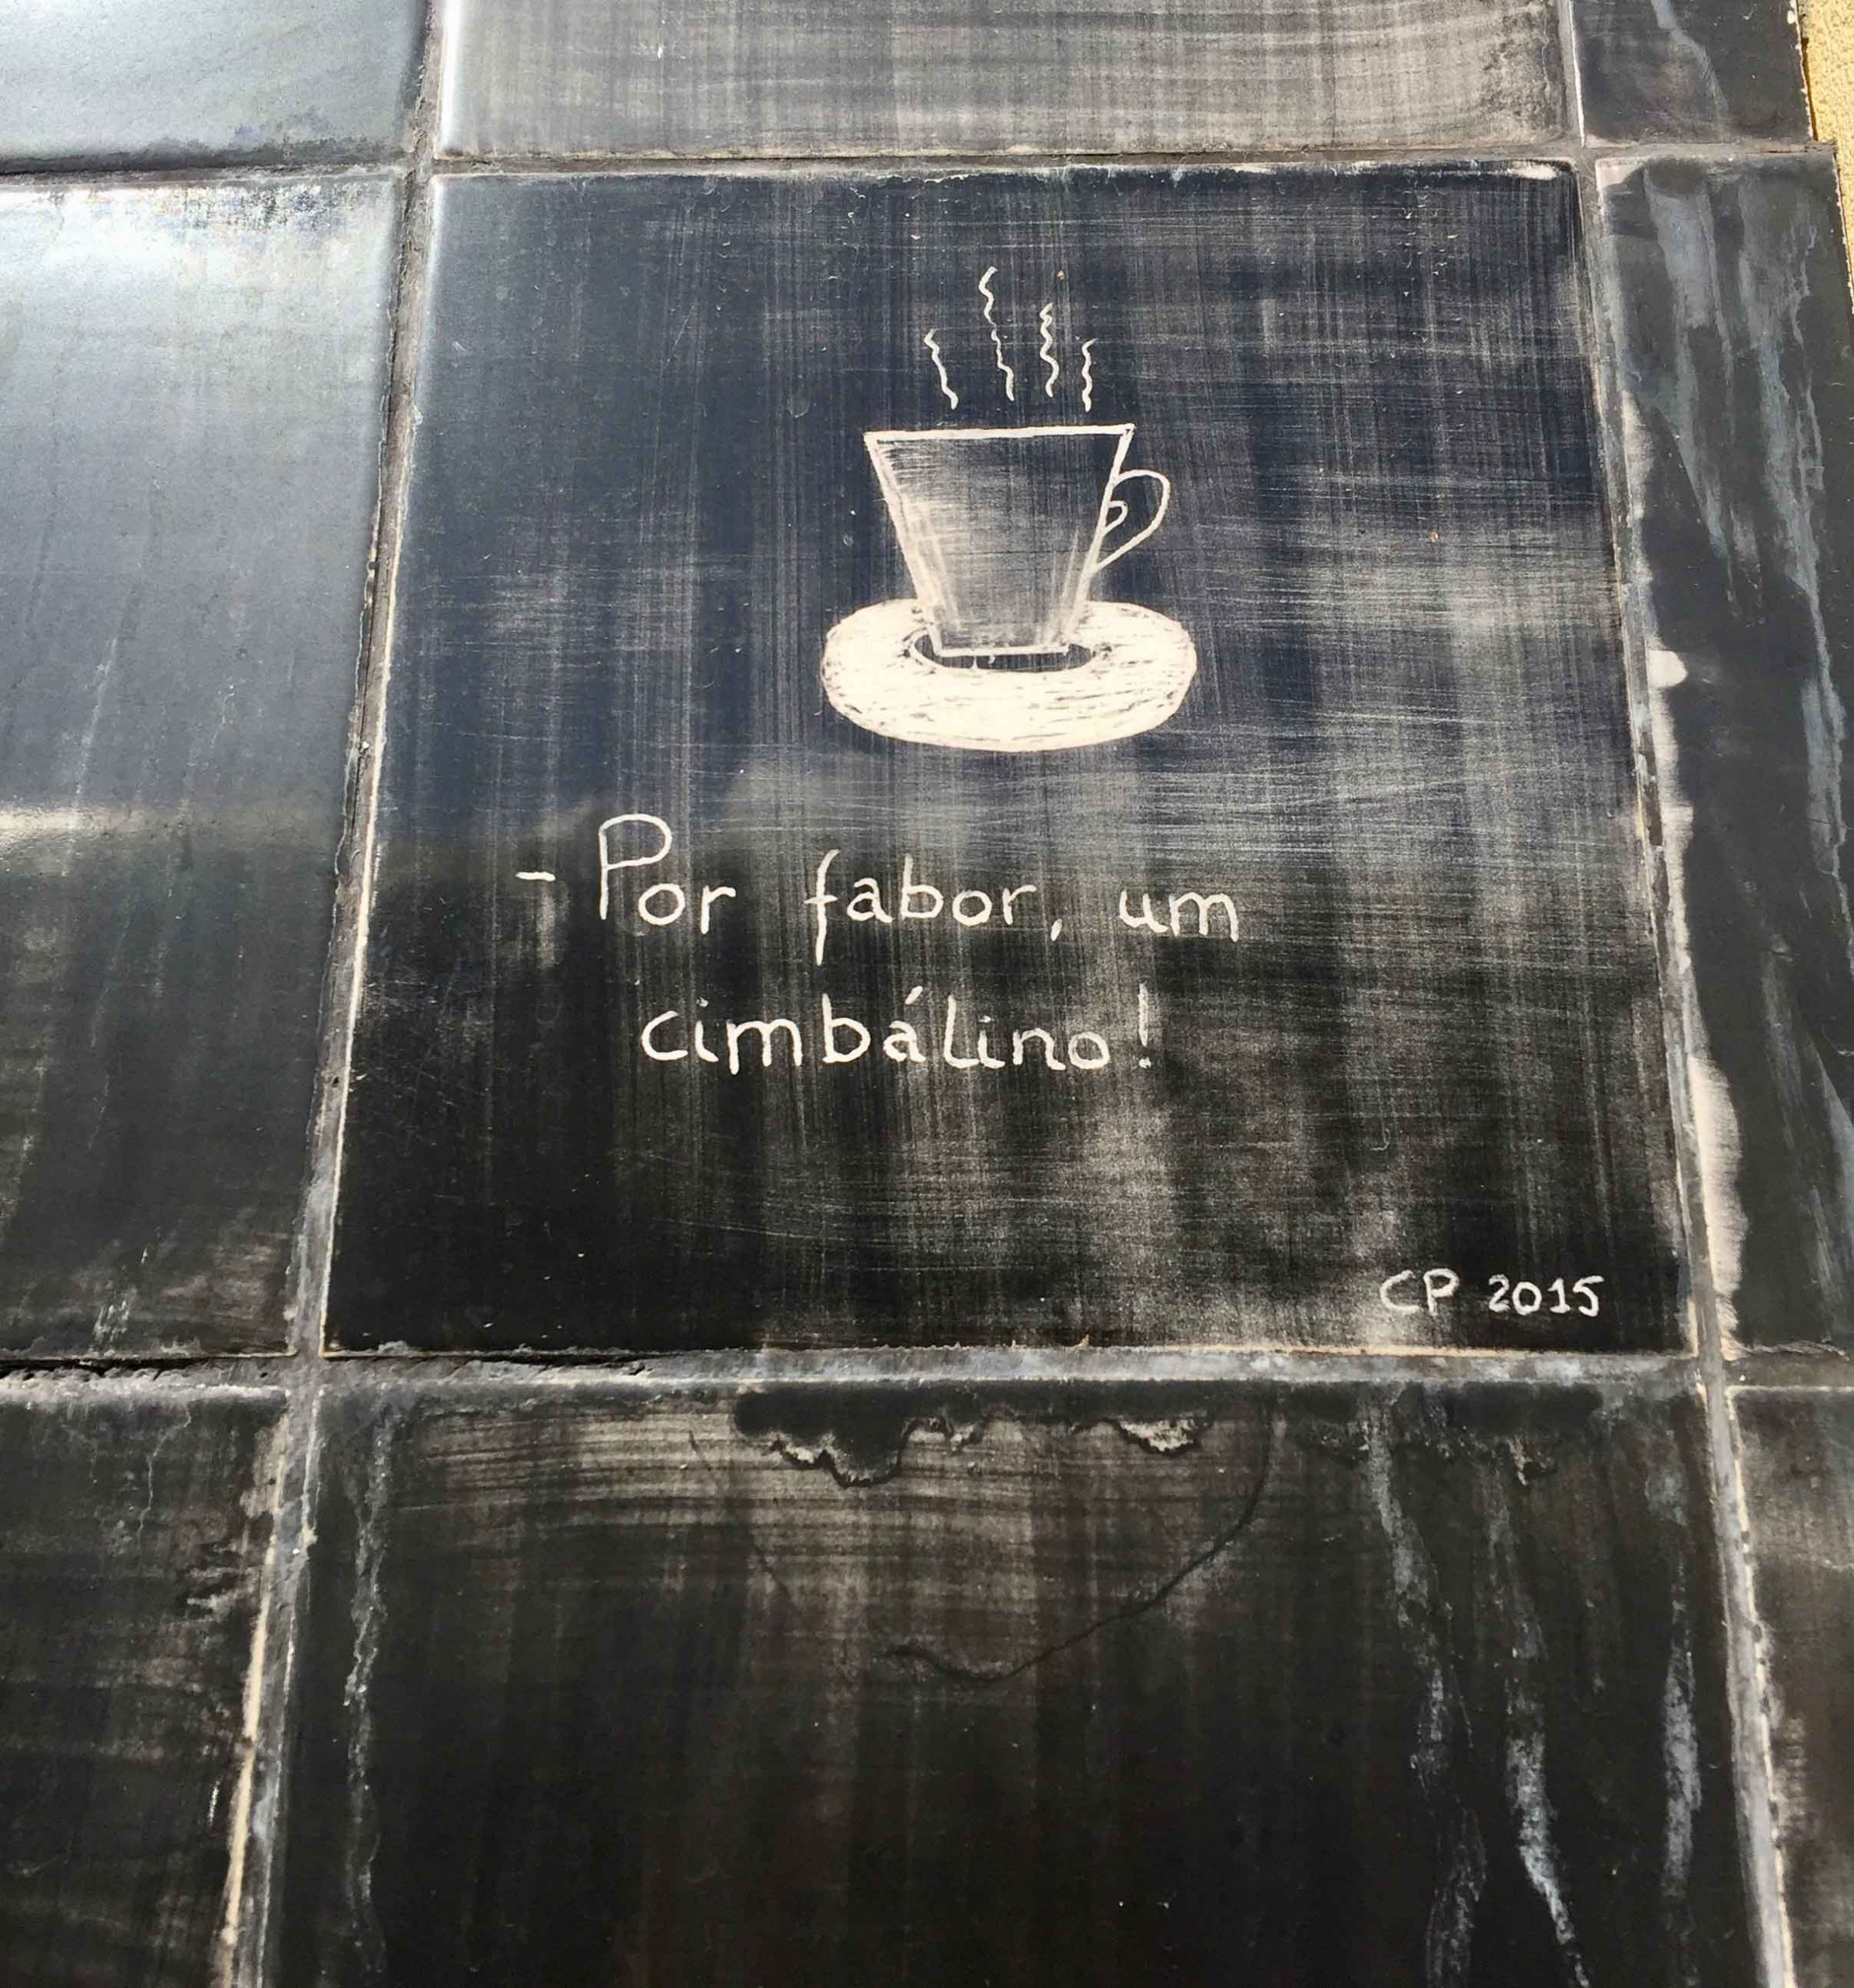 - Por fabor, um
cimbálino!
CP 2015